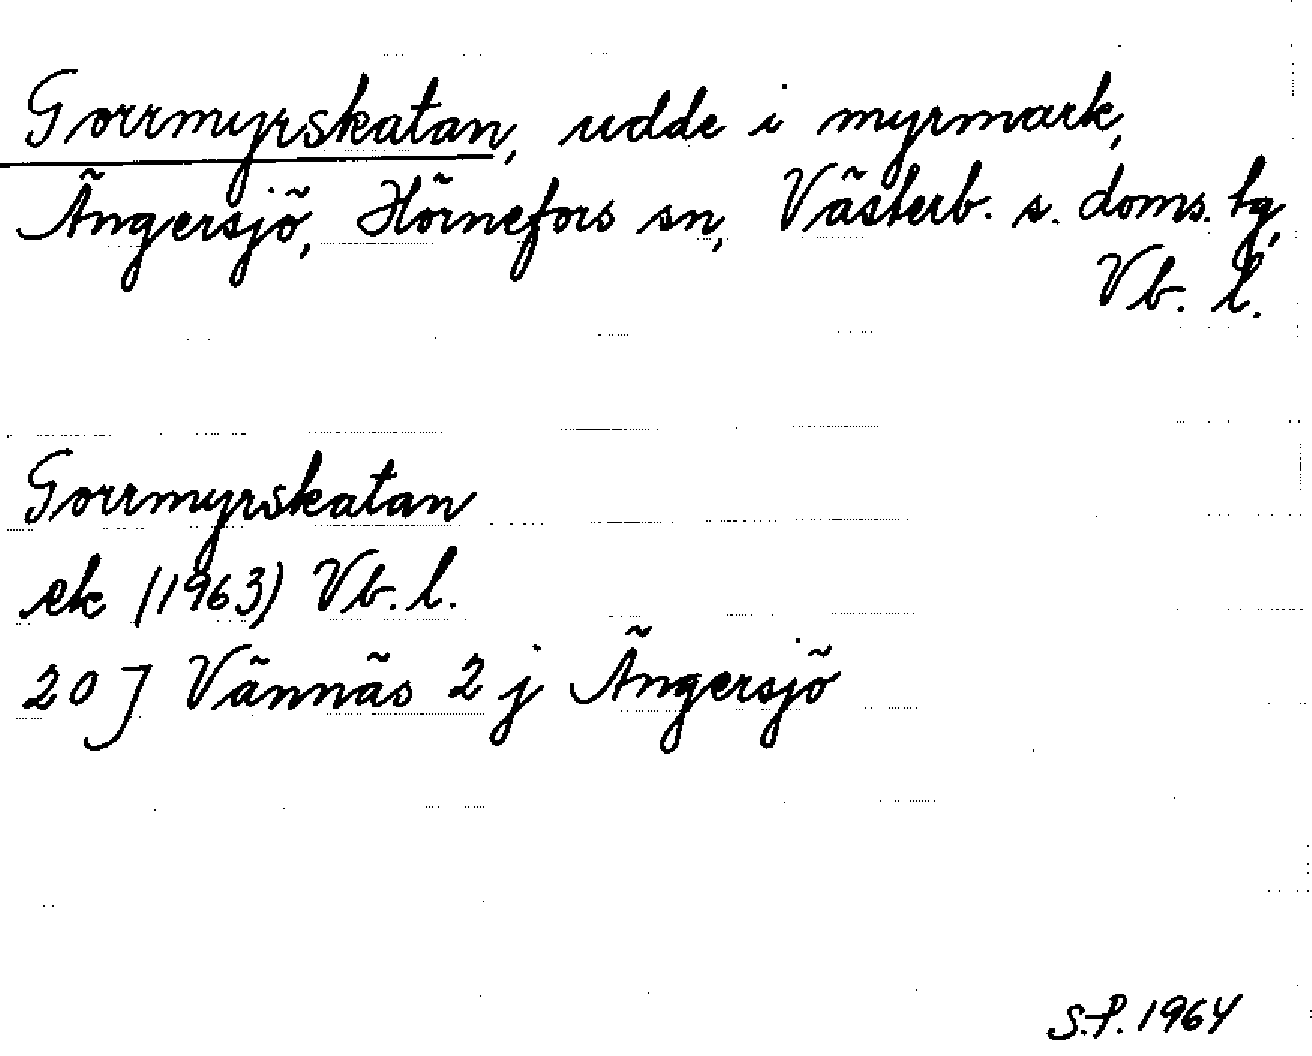 Gorrmyrskatan, udde i myrmark,
Ängersjö, Hörnefors sn, Västerb. s. doms. tg,
Vb. l.
Gorrmyrskatan
ek (1963) Vb. l.
20 J Vännäs 2 j Ängersjö
S.P. 1964